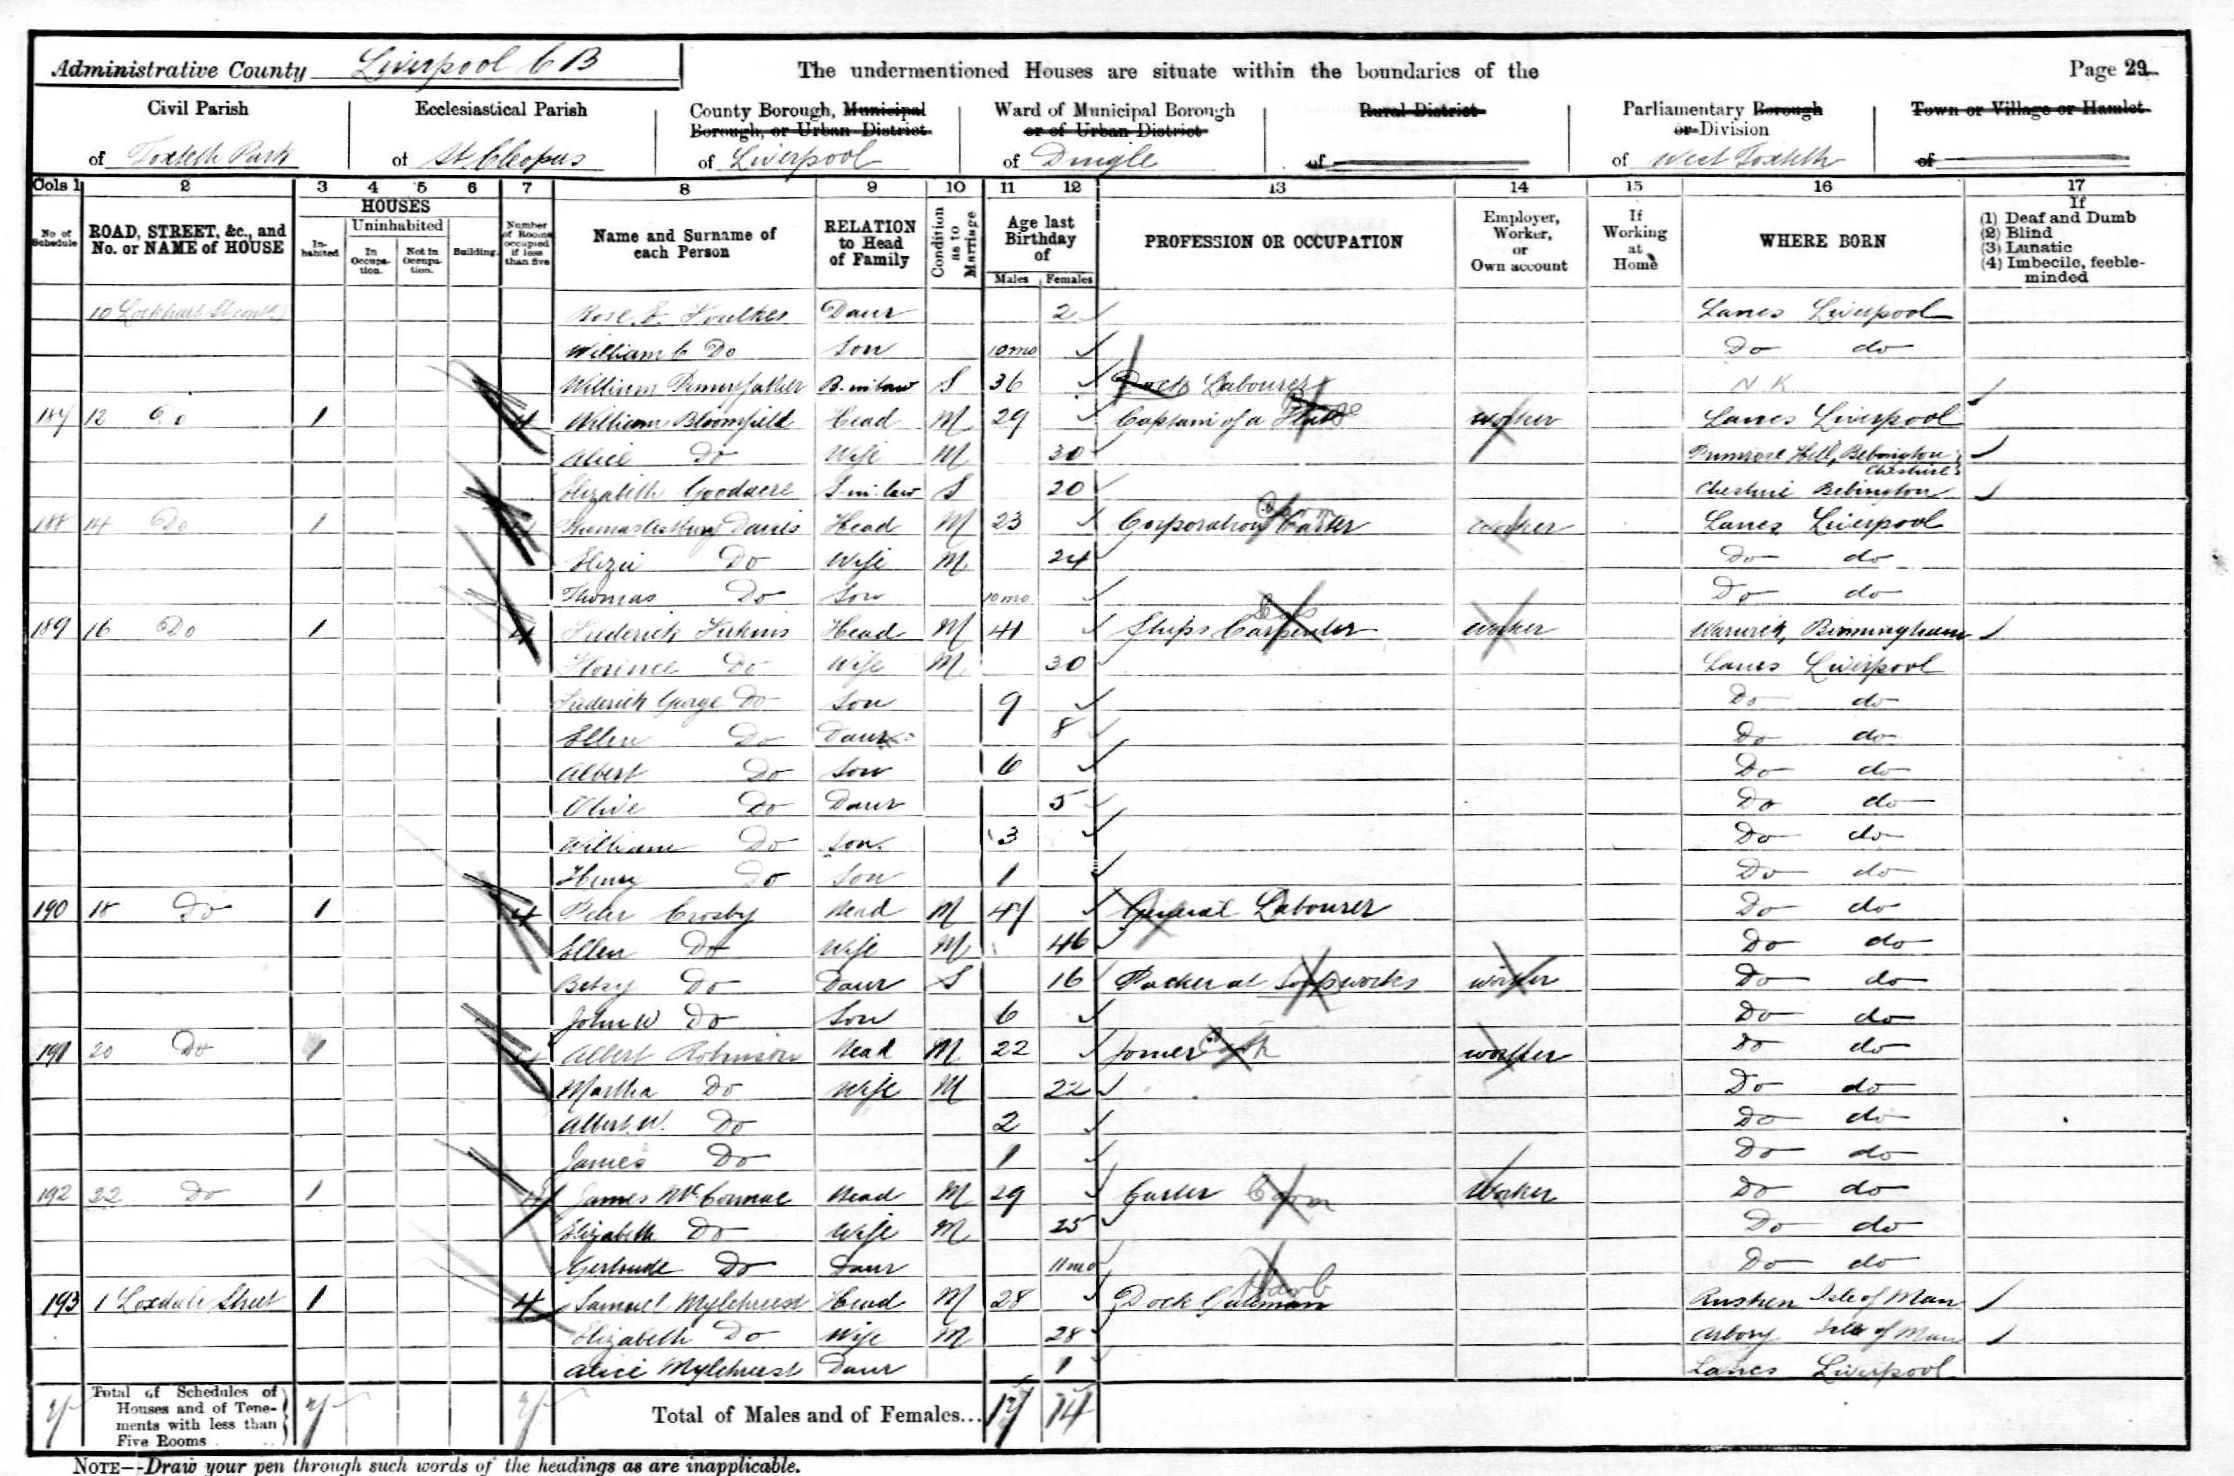 Administrative County Liverpool CB
The undermentioned Houses are situate within the boundaries of the
Page 29
Civil Parish
of Toxteth Park
Ecclesiastical Parish
of St Cleopas
County Borough, Municipal
Borough, or Urban District
of Liverpool
Ward of Municipal Borough
or of Urban District
of Dingle
Rural District
of
Parliamentary Borough
or Division
of West Toxteth
Town or Village or Hamlet
of
Cols 1 2 3 4 5 6 7 8 9 10 11 12 13 14 15 16 17
No of Schedule
ROAD, STREET, &c., and No. or NAME of HOUSE
HOUSES
In-habited
Uninhabited
In Occupa-tion.
Not in Occupa-tion.
Building.
Number of Rooms occupied if less than five
Name and Surname of each Person
RELATION to Head of Family
Condition as to Marriage
Age last Birthday of
Males Females
PROFESSION OR OCCUPATION
Employer, Worker, or Own account
If Working at Home
WHERE BORN
If
(1) Deaf and Dumb
(2) Blind
(3) Lunatic
(4) Imbecile, feeble-minded
10 Lockhart St contd Rose E. Foulkes Daur 2 Lancs Liverpool
William C Do Son 10mo Do do
William Pennyfather B-in-law S 36 Dock Labourer N K
187 12 Do 1 4 William Bloomfield Head M 29 Captain of a Flat Worker Lancs Liverpool
Alice Do Wife M 30 Primrose Hill, Bebington Cheshire
Elizabeth Goodacre S-in-law S 20 Cheshire Bebington
188 14 Do 1 4 Thomas Davis Head M 23 Corporation Carter Worker Lancs Liverpool
Eliza Do Wife M 24 Do do
Thomas Do Son 10mo Do do
189 16 Do 1 4 Frederick Firkins Head M 41 Ships Carpenter Worker Warwick, Birmingham
Florence Do Wife M 30 Lancs Liverpool
Frederick George Do Son 9 Do do
Ellen Do Daur 8 Do do
Albert Do Son 6 Do do
Olive Do Daur 5 Do do
William Do Son 3 Do do
Henry Do Son 1 Do do
190 18 Do 1 4 Peter Crosby Head M 47 General Labourer Do do
Ellen Do Wife M 46 Do do
Betsy Do Daur S 16 Packer at Soapworks Worker Do do
John W Do Son 6 Do do
191 20 Do 1 4 Albert Robinson Head M 22 Joiner Worker Do do
Martha Do Wife M 22 Do do
Albert W. Do 2 Do do
James Do 1 Do do
192 22 Do 1 4 James McCormac Head M 29 Carter Worker Do do
Elizabeth Do Wife M 25 Do do
Gertrude Do Daur 11mo Do do
193 1 Loxdale Street 1 4 Samuel Mylchreest Head M 28 Dock Gateman Rushen Isle of Man
Elizabeth Do Wife M 28 Arbory Isle of Man
Alice Mylchreest Daur 1 Lancs Liverpool
7 Total of Schedules of Houses and of Tene-ments with less than Five Rooms 7 7 Total of Males and of Females... 17 14
NOTE—Draw your pen through such words of the headings as are inapplicable.